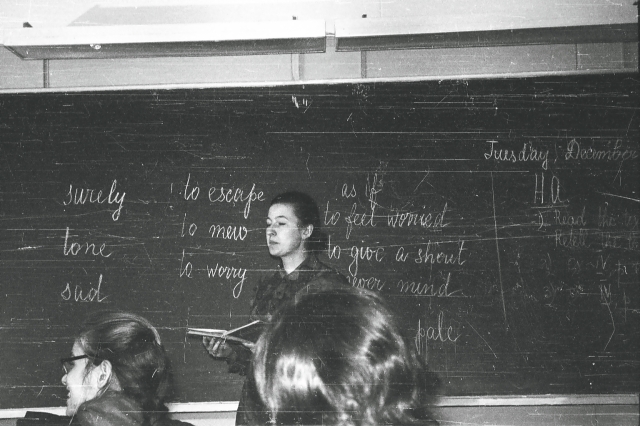 surely
tone
sud
to escape
to mew
to worry
as if
to feel worried
to give a shout
never mind
pale
Tuesday, December
H A
1. Read the
Retell the